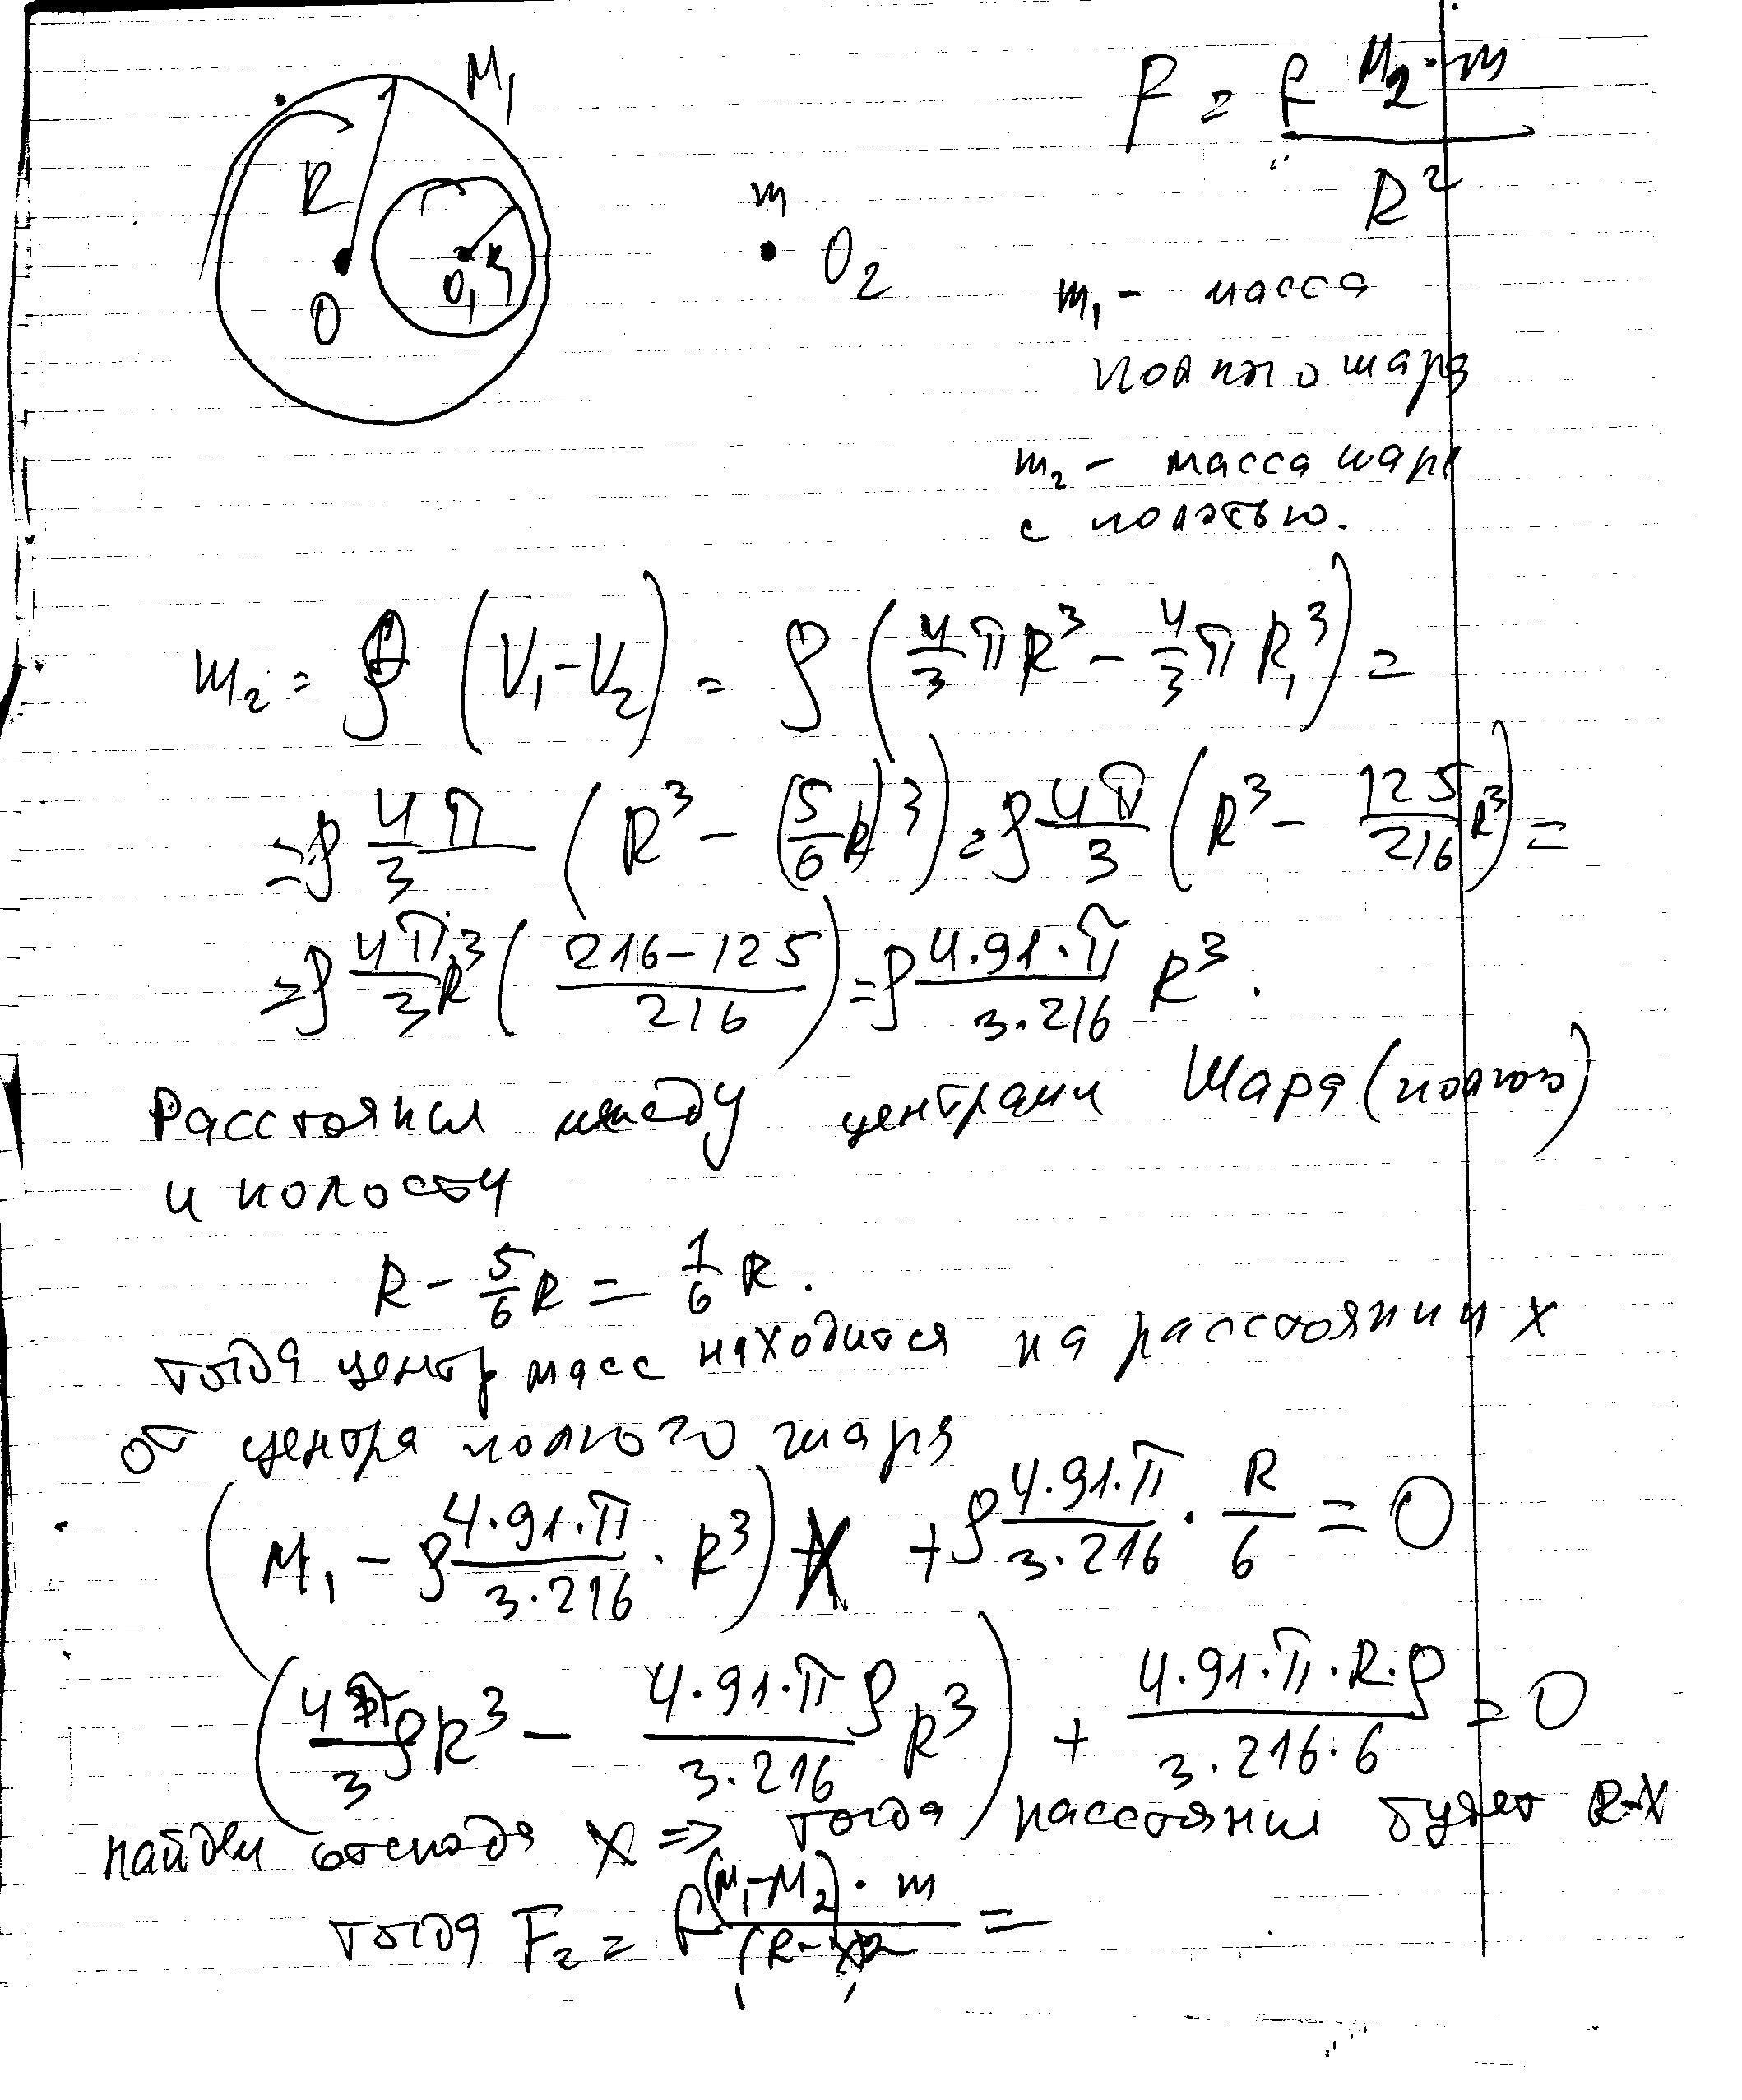 M₁
R
O
O₁ R₁
m
O₂
F = f M₂·m / R²
m₁ – масса
полного шара
m₂ – масса шара
с полостью.
m₂ = ρ (V₁ – V₂) = ρ (4/3 πR³ – 4/3 πR₁³) =
= ρ 4/3 π (R³ – (5/6 R)³) = ρ 4π/3 (R³ – 125/216 R³) =
= ρ 4π/3 R³ ((216–125)/216) = ρ 4·91·π/3·216 R³.
Расстояния между центрами шара (полного)
и полости
R – 5/6 R = 1/6 R.
тогда центр масс находится на расстоянии x
от центра полного шара
(M₁ – ρ 4·91·π/3·216 · R³) X + ρ 4·91·π/3·216 · R/6 = 0
(4π/3 ρR³ – 4·91·π/3·216 ρ R³) + 4·91·π·R·ρ/3·216·6 = 0
найдем отсюда x => тогда расстояния будет R–X
тогда F₂ = f (M₁–M₂)·m / (R–x)² =